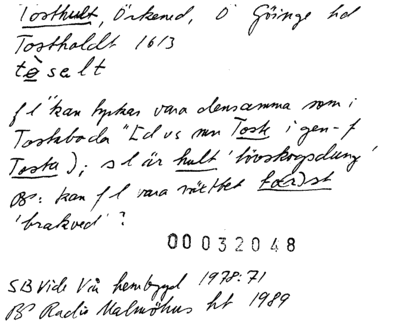 Tosthult, Örkened, Ö Göinge hd
Tostholdt 1613
tèselt
f l "kan tyckas vara densamma som i
Tostaboda" [dvs mn Toste i gen. f
Tosta); s l är hult 'lövskogsdunge'
BP: kan f l vara växtbet to(r)st
'brakved'?
00032048
SB Vide Vår hembygd 1978:71
BP Radio Malmöhus ht 1989